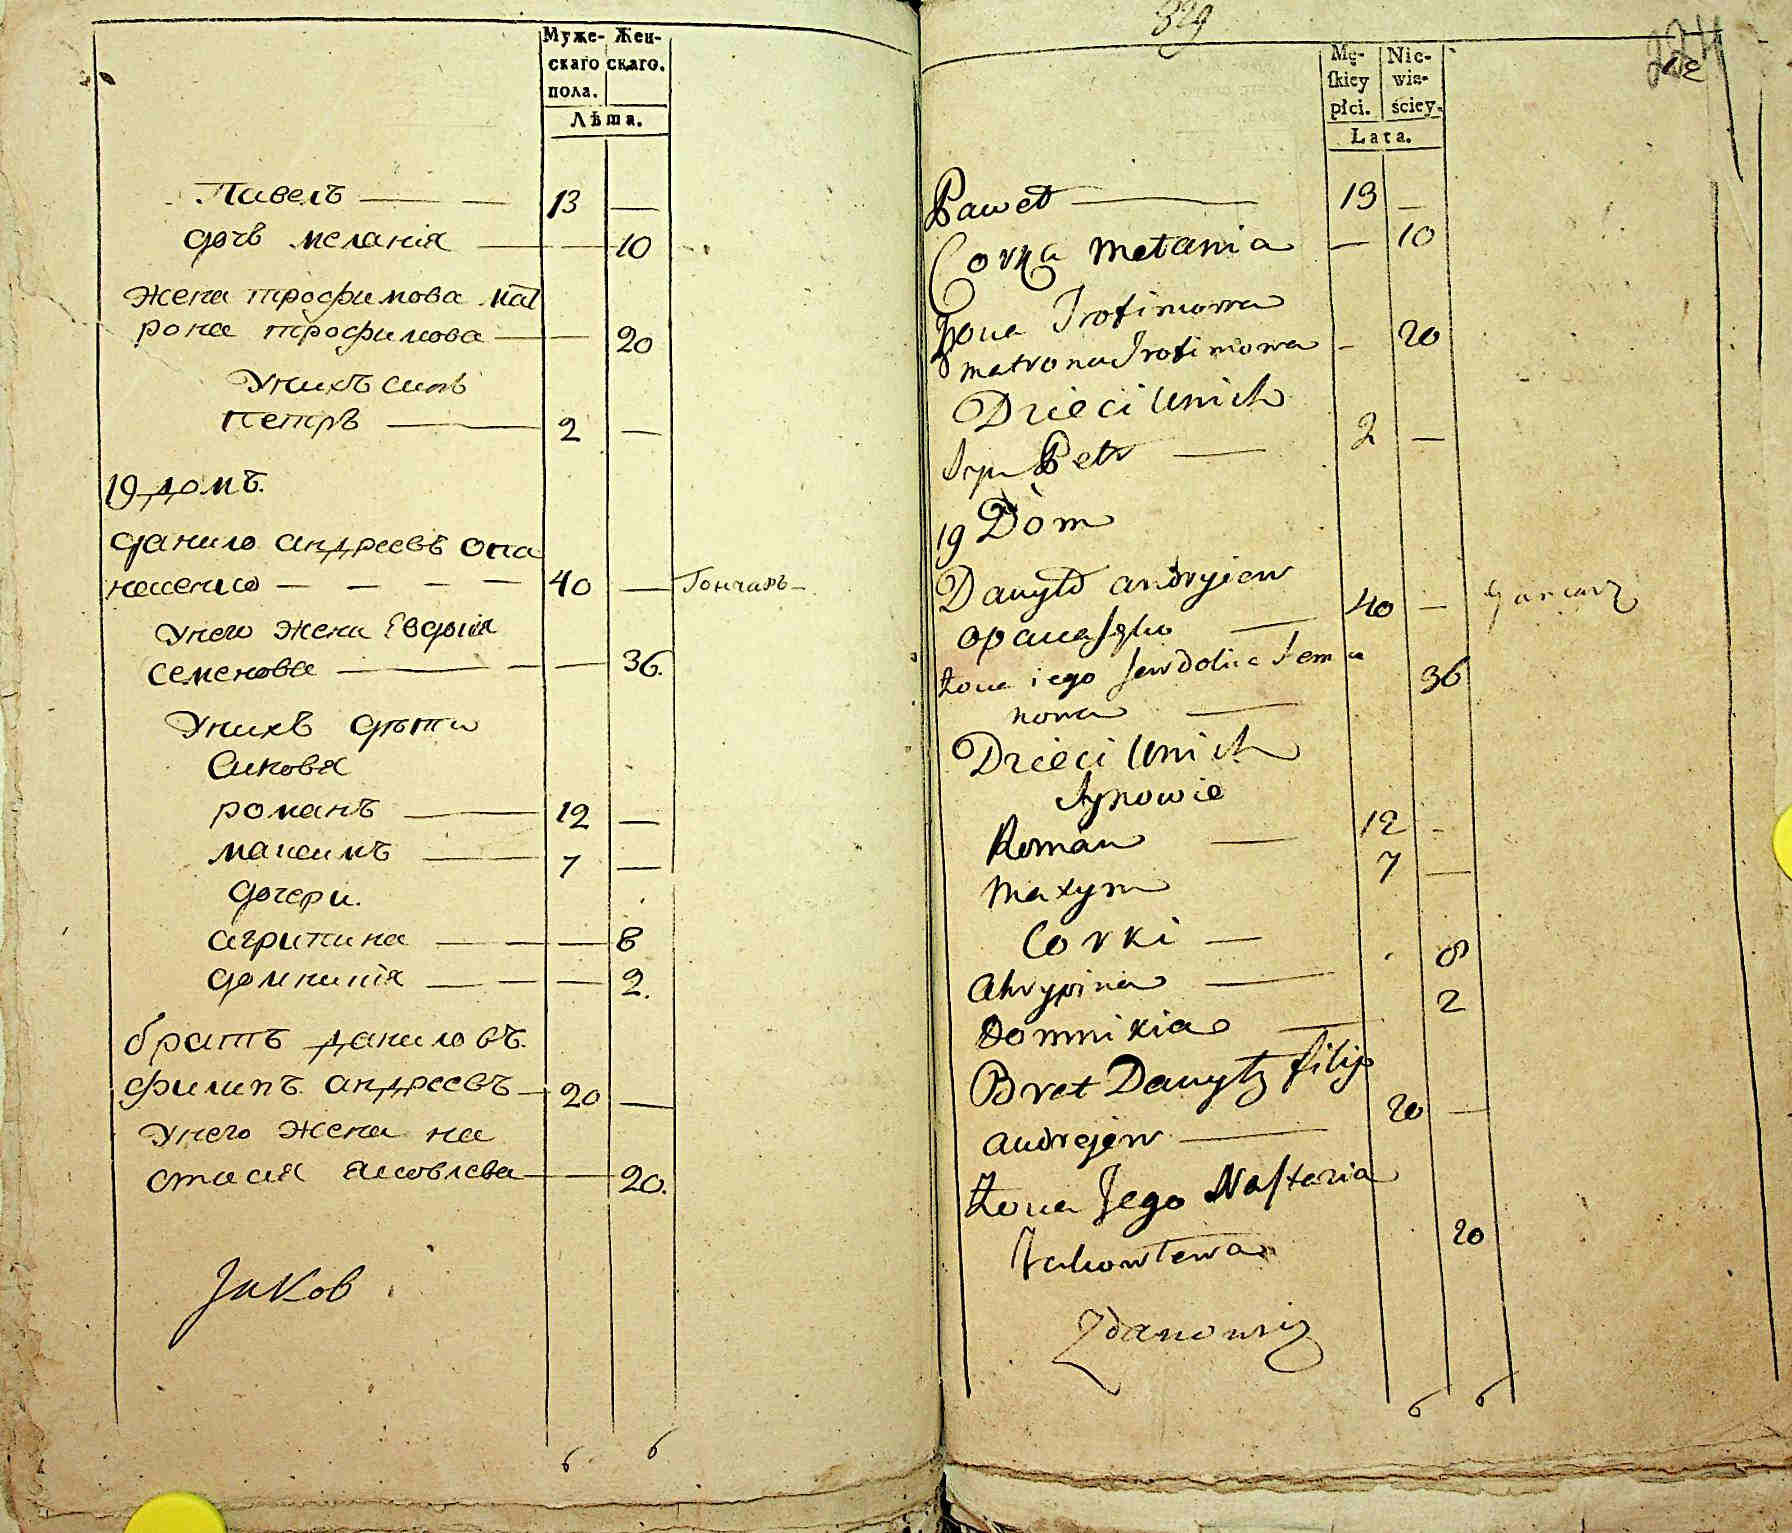 Муже- Жен-
скаго скаго.
пола.
Лѣта.
Павелъ 13 —
дочь мелания — 10
Жена трофимова мат
рона трофимова — 20
Унихъ синъ
петръ 2 —
19 домъ.
данило андреевъ опа
насенко 40 — Гончаръ
Унего жена Евдокия
семенова — 36.
Унихъ дѣти
Синовя
романъ 12 —
максимъ 7 —
дочери.
агрипина — 8
домникия — 2.
братъ даниловъ.
филипъ андреевъ 20 —
Унего жена на
стасия яковлева — 20.
Jakob
6 6
329
224
Mę- Nie-
skiey wie-
płci. ściey.
Lata.
Paweł 13 —
Corka Metania — 10
Żona Trofimowa
matrona Trofimowa — 20
Dzieci Unich
Syn Petr 2 —
19 Dom
Danyło andryiew
opanasęko 40 — Garcarz
Żona iego Jewdokia Seme
nowa 36
Dzieci Unich
Synowie
Roman 12 -
Maxym 7 —
Corki
Ahrypina 8
Domnikia 2
Brat Danyły filip
andrejew 20 —
Żona Jego Nastazia
Jakowlewa 20
Zdanowicz
6 6